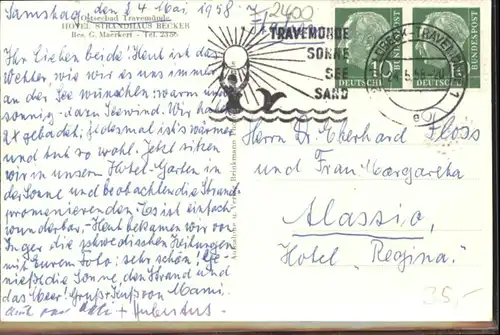 Samstag, den 24 Mai 1958.
2400
Ostseebad Travemünde
HOTEL STRANDHAUS BECKER
Bes. G. Maerkert - Tel. 2350
Ihr Lieben beide! Heut ist das
Wetter, wie wir es uns immer
an der See wünschen, warm und
sonnig - dazu Seewind. Wir haben
2x gebadet; jedesmal ist's wärmer
und tut so wohl. Jetzt sitzen
wir in unserm Hotel-Garten in
der Sonne und beobachten die Strand-
promenierenden. Es ist einfach
wunderbar. - Heut bekamen wir von
Inger die schwedischen Zeitungen
mit Eurem Foto: sehr schön! Ge-
nießt die Sonne, den Strand und
das Meer! Gruß + Kuß von Mami.
+ Hubertus.
TRAVEMÜNDE
SONNE
SEE
SAND
LÜBECK-TRAVEMÜNDE 1
DEUTSCHE BUNDESPOST
10
DEUTSCHE BUNDESPOST
Herrn Dr. Eberhard Floss
und Frau Margaretha
Alassio,
Hotel „Regina."
35,-